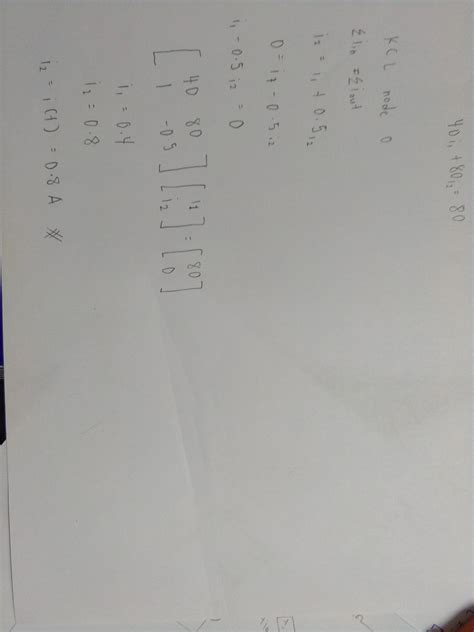 40i₁ + 80i₂ = 80
KCL node 0
Σiin = Σiout
i₂ = i₁ + 0.5i₂
0 = i₁ - 0.5i₂
i₁ - 0.5i₂ = 0
[40 80
1 -05] [i₁
i₂] = [80
0]
i₁ = 0.4
i₂ = 0.8
i₂ = i(t) = 0.8 A